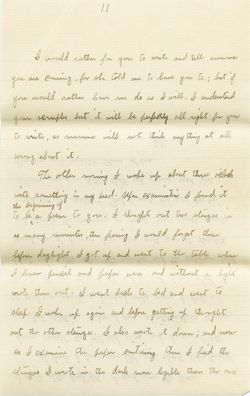 11
I would rather for you to write and tell mamma
you are coming, for she told me to have you to; but if
you would rather have me do so I will. I understand
your scruples but it will be perfectly all right for you
to write, as mamma will not think anything at all
wrong about it.
The other morning I woke up about three oclock
with something in my head. Upon examination I found it
the beginning of
to be a poem to you. I thought out two stanzas in
as many minutes, then fearing I would forget them
before daylight I got up and went to the table where
I knew pencil and paper were and without a light
wrote them out. I went back to bed and went to
sleep. I woke up again and before getting up thought
out the other stanzas. I also wrote it down; and now
as I examine the paper containing them I find the
stanzas I wrote in the dark more legible than the ones